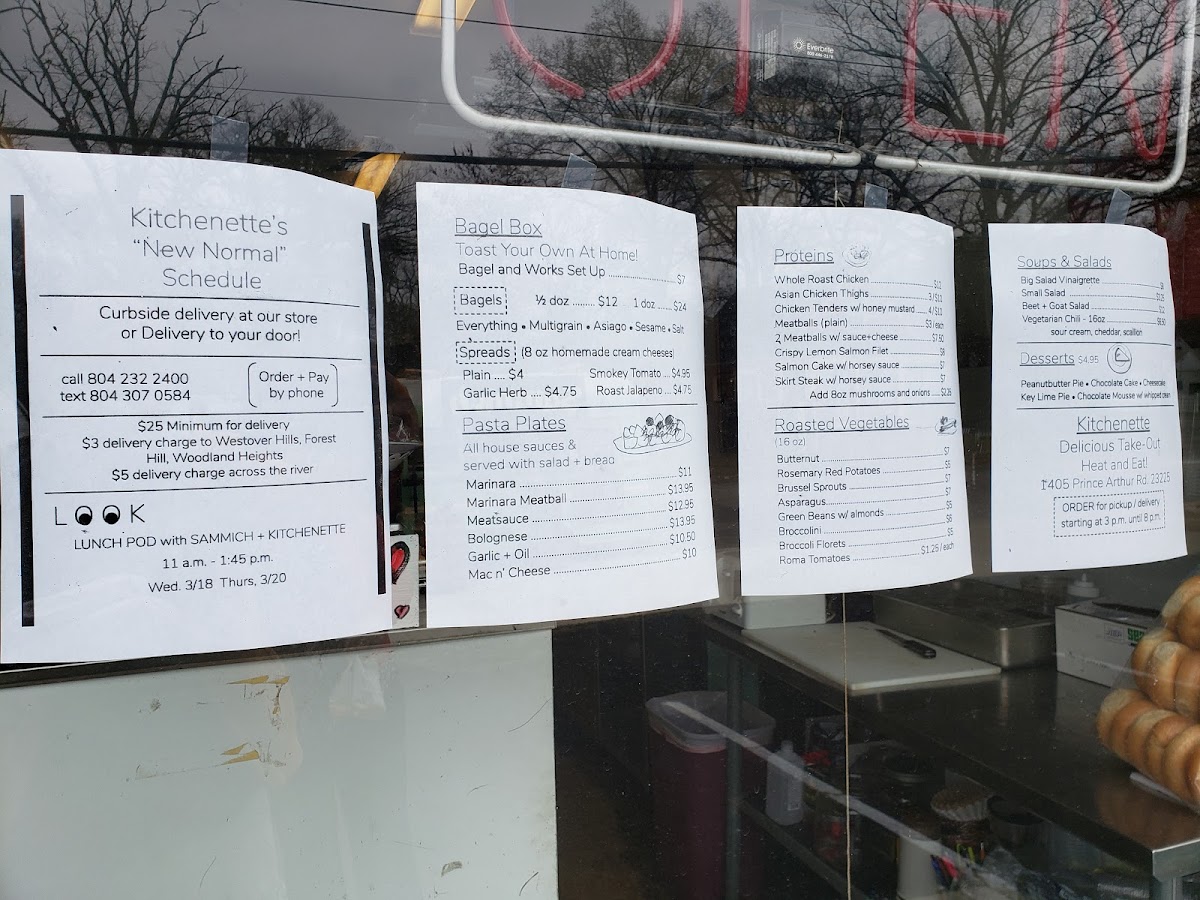 OPEN
Everbrite
Kitchenette's
"New Normal"
Schedule
Curbside delivery at our store
or Delivery to your door!
call 804 232 2400
text 804 307 0584
Order + Pay
by phone
$25 Minimum for delivery
$3 delivery charge to Westover Hills, Forest
Hill, Woodland Heights
$5 delivery charge across the river
LOOK
LUNCH POD with SAMMICH + KITCHENETTE
11 a.m. - 1:45 p.m.
Wed. 3/18 Thurs, 3/20
Bagel Box
Toast Your Own At Home!
Bagel and Works Set Up ........................ $7
Bagels ½ doz ........ $12 1 doz ...... $24
Everything • Multigrain • Asiago • Sesame • Salt
Spreads (8 oz homemade cream cheeses)
Plain .... $4 Smokey Tomato .... $4.95
Garlic Herb .... $4.75 Roast Jalapeno .... $4.75
Pasta Plates
All house sauces &
served with salad + bread
Marinara ........................ $11
Marinara Meatball ........................ $13.95
Meatsauce ........................ $12.95
Bolognese ........................ $13.95
Garlic + Oil ........................ $10.50
Mac n' Cheese ........................ $10
Proteins
Whole Roast Chicken ........................ $12
Asian Chicken Thighs ........................ 3/$11
Chicken Tenders w/ honey mustard ........ 4/$11
Meatballs (plain) ........................ $3 / each
2 Meatballs w/ sauce+cheese ........................ $7.50
Crispy Lemon Salmon Filet ........................ $8
Salmon Cake w/ horsey sauce ........................ $7
Skirt Steak w/ horsey sauce ........................ $7
Add 8oz mushrooms and onions ..... $2.25
Roasted Vegetables
(16 oz)
Butternut ........................ $7
Rosemary Red Potatoes ........................ $5
Brussel Sprouts ........................ $7
Asparagus ........................ $7
Green Beans w/ almonds ........................ $5
Broccolini ........................ $6
Broccoli Florets ........................ $5
Roma Tomatoes ........................ $1.25 / each
Soups & Salads
Big Salad Vinaigrette
Small Salad
Beet + Goat Salad ........................ $12
Vegetarian Chili - 16oz ........................ $8.50
sour cream, cheddar, scallion
Desserts $4.95
Peanutbutter Pie • Chocolate Cake • Cheesecake
Key Lime Pie • Chocolate Mousse w/ whipped cream
Kitchenette
Delicious Take-Out
Heat and Eat!
1405 Prince Arthur Rd. 23225
ORDER for pickup / delivery
starting at 3 p.m. until 8 p.m.